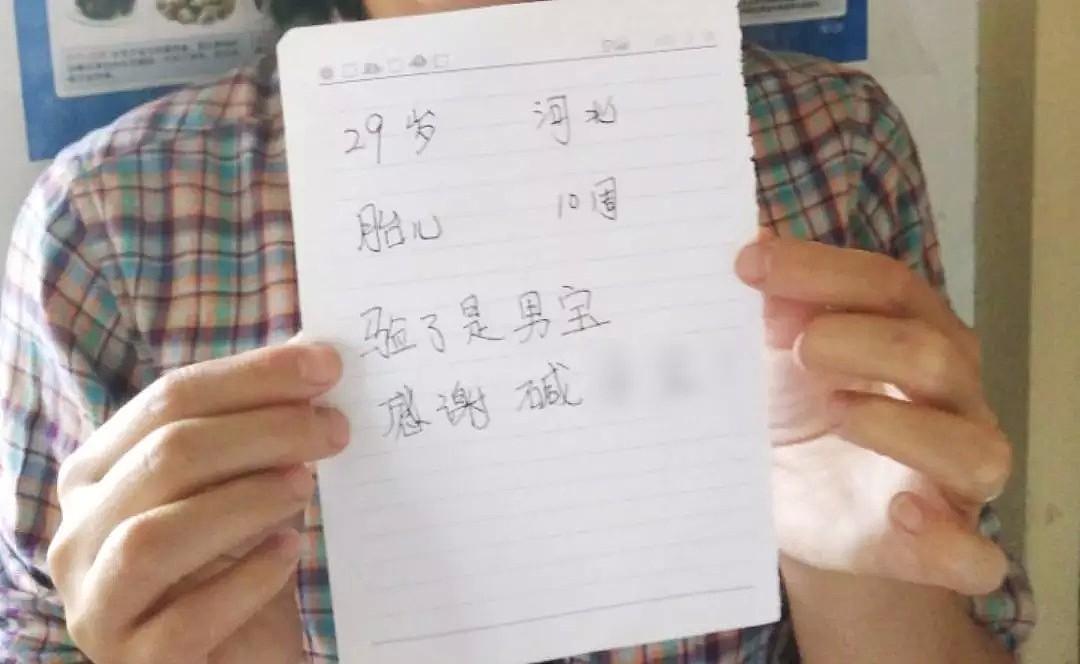 29岁 河北
胎儿 10周
验了是男宝
感谢 碱